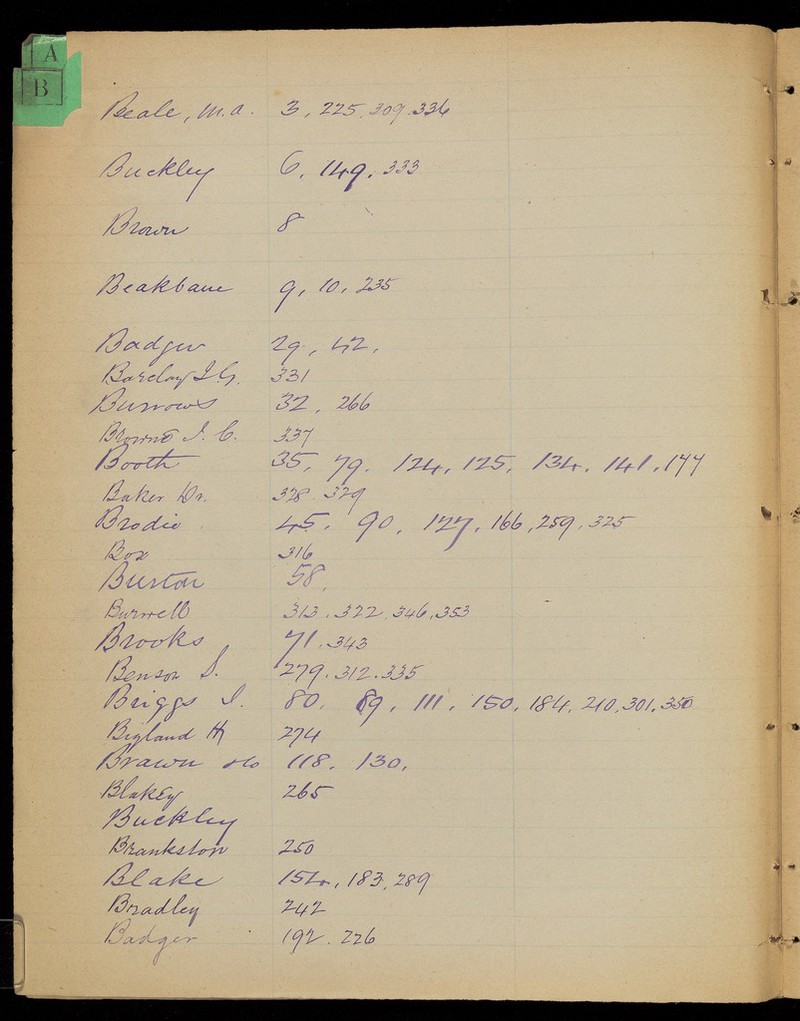 A
B
Beale, M.A. 3, 225, 309, 336
Buckley 6, 149, 333
Brown 8
Beakbane 9, 10, 235
Badger 29, 42,
Barclay J.G. 331
Burrows 32, 266
J. C. 337
Booth 35, 79, 124, 125, 134, 141, 144
Baker Dr. 328, 329
Brodie 45, 90, 127, 166, 259, 325
Box 316
Burton 58,
Burwell 313, 322, 346, 353
Brooks 71, 343
Benson S. 279, 312, 335
Briggs J. 80, 89, 111, 150, 184, 210, 301, 350
Bigland H 274
Brawn 118, 130,
Blakey 265
Buckley
Brankston 250
Blake 154, 183, 289
Bradley 242
Badger 192, 226